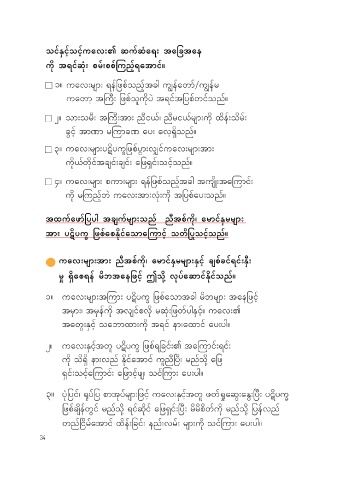 သင်နှင့်သင့်ကလေး၏ ဆက်ဆံရေး အခြေအနေ
ကို အရင်ဆုံး စမ်းစစ်ကြည့်ရအောင်။
၁။ ကလေးများ ရန်ဖြစ်သည့်အခါ ကျွန်တော်/ကျွန်မ
ကတော အကြီး ဖြစ်သူကိုပဲ အရင်အပြစ်တင်သည်။
၂။ သားသမီး အကြီးအား ညီငယ်၊ ညီမငယ်များကို ထိန်းသိမ်း
ခွင့် အာဏာ မကြာခဏ ပေး လေ့ရှိသည်။
၃။ ကလေးများပဋိပက္ခဖြစ်ပွားလျှင်ကလေးများအား
ကိုယ်တိုင်အချင်းချင်း ဖြေရှင်းသင့်သည်။
၄။ ကလေးများ စကားများ ရန်ဖြစ်သည့်အခါ အကျိုးအကြောင်း
ကို မကြည့်ဘဲ ကလေးအားလုံးကို အပြစ်ပေးသည်။
အထက်ဖော်ပြပါ အချက်များသည် ညီအစ်ကို၊ မောင်နှမများ
အား ပဋိပက္ခ ဖြစ်စေနိုင်သောကြောင့် သတိပြုသင့်သည်။
ကလေးများအား ညီအစ်ကို၊ မောင်နှမများနှင့် ချစ်ခင်ရင်းနှီး
မှု ရှိစေရန် မိဘအနေဖြင့် ဤသို့ လုပ်ဆောင်နိုင်သည်။
၁။ ကလေးများအကြား ပဋိပက္ခ ဖြစ်သောအခါ မိဘများ အနေဖြင့်
အမှား၊ အမှန်ကို အလျင်စလို မဆုံးဖြတ်ပါနှင့်။ ကလေး၏
အတွေးနှင့် သဘောထားကို အရင် နားထောင် ပေးပါ။
၂။ ကလေးနှင့်အတူ ပဋိပက္ခ ဖြစ်ရခြင်း၏ အကြောင်းရင်း
ကို သိရှိ နားလည် နိုင်အောင် ကူညီပြီး မည်သို့ ဖြေ
ရှင်းသင့်ကြောင်း ဖြောင့်ဖျ သင်ကြား ပေးပါ။
၃။ ပုံပြင်၊ ရုပ်ပြ စာအုပ်များဖြင့် ကလေးနှင့်အတူ ဖတ်ရှုဆွေးနွေးပြီး ပဋိပက္ခ
ဖြစ်ချိန်တွင် မည်သို့ ရင်ဆိုင် ဖြေရှင်းပြီး မိမိစိတ်ကို မည်သို့ ပြန်လည်
တည်ငြိမ်အောင် ထိန်းခြင်း နည်းလမ်း များကို သင်ကြား ပေးပါ၊
34